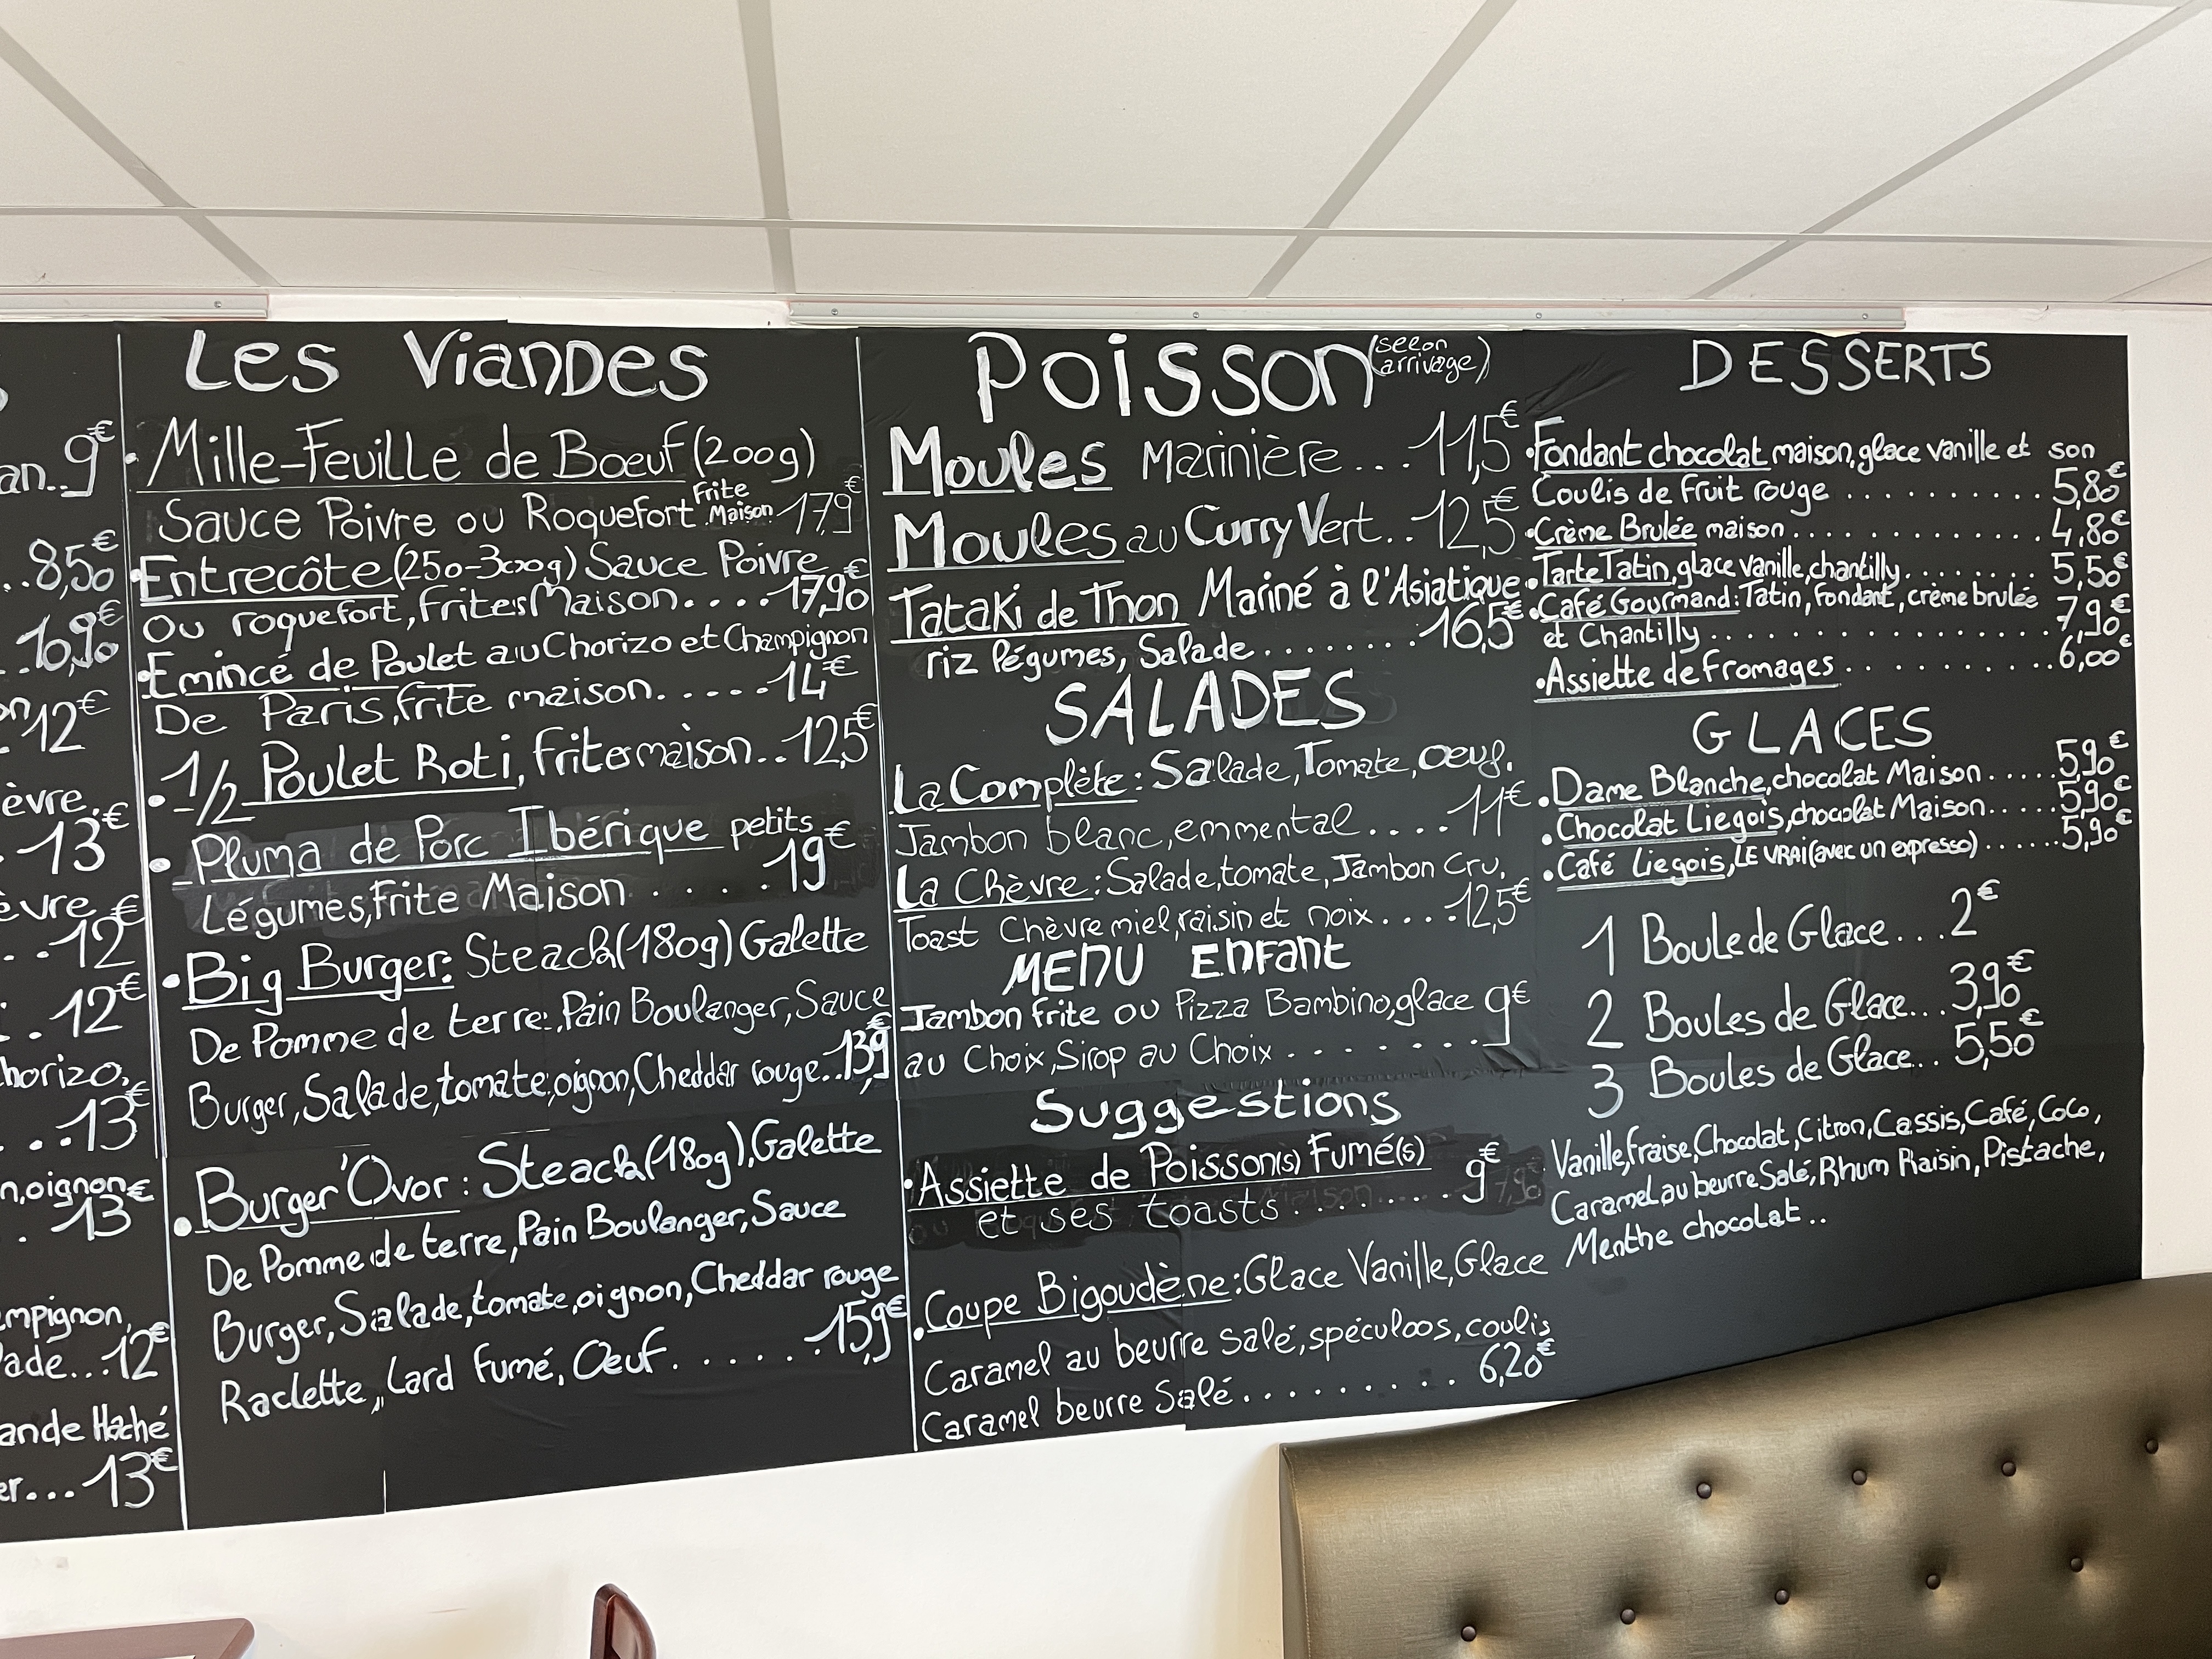 an..9€
..8,50€
..10,90€
on 12€
èvre,
.13€
èvre
..12€
..12€
horizo,
...13€
n,oignon
.13€
ampignon,
lade...12€
ande Haché
er...13€
Les Viandes
• Mille-Feuille de Boeuf (200g)
Sauce Poivre ou Roquefort Frite Maison 17,9€
• Entrecôte (250-300g) Sauce Poivre
Ou roquefort, Frites Maison....17,90€
• Emincé de Poulet au Chorizo et Champignon
De Paris, frite maison.....14€
• 1/2 Poulet Roti, Frites maison..12,5€
• Pluma de Porc Ibérique petits
Légumes, Frite Maison.....19€
• Big Burger: Steack (180g) Galette
De Pomme de terre, Pain Boulanger, Sauce
Burger, Salade, tomate, oignon, Cheddar rouge..13,9€
• Burger 'Ovor : Steack (180g), Galette
De Pomme de terre, Pain Boulanger, Sauce
Burger, Salade, tomate, oignon, Cheddar rouge
Raclette, Lard Fumé, Œuf.......15,9€
Poisson (selon arrivage)
Moules Marinière...11,5€
Moules au Curry Vert..12,5€
Tataki de Thon Mariné à l'Asiatique
riz légumes, Salade........16,5€
SALADES
La Complète: Salade, Tomate, oeuf.
Jambon blanc, emmental....11€
La Chèvre: Salade, tomate, Jambon Cru,
Toast Chèvre miel, raisin et noix....12,5€
MENU ENFANT
Jambon frite ou Pizza Bambino, glace 9€
au Choix, Sirop au Choix........
Suggestions
• Assiette de Poisson(s) Fumé(s)
et ses toasts.......9€
• Coupe Bigoudène: Glace Vanille, Glace
Caramel au beurre salé, spéculoos, coulis
Caramel beurre Salé.........6,20€
DESSERTS
• Fondant chocolat maison, glace vanille et son
Coulis de Fruit rouge..........5,80€
• Crème Brulée maison............4,80€
• Tarte Tatin, glace vanille, chantilly........5,50€
• Café Gourmand: Tatin, fondant, crème brulée
et Chantilly................7,90€
• Assiette de Fromages..........6,00€
GLACES
• Dame Blanche, chocolat Maison.....5,90€
• Chocolat Liegois, chocolat Maison.....5,90€
• Café Liegois, LE VRAI (avec un expresso)......5,90€
1 Boule de Glace...2€
2 Boules de Glace...3,90€
3 Boules de Glace...5,50€
Vanille, Fraise, Chocolat, Citron, Cassis, Café, Coco,
Caramel au beurre Salé, Rhum Raisin, Pistache,
Menthe chocolat..